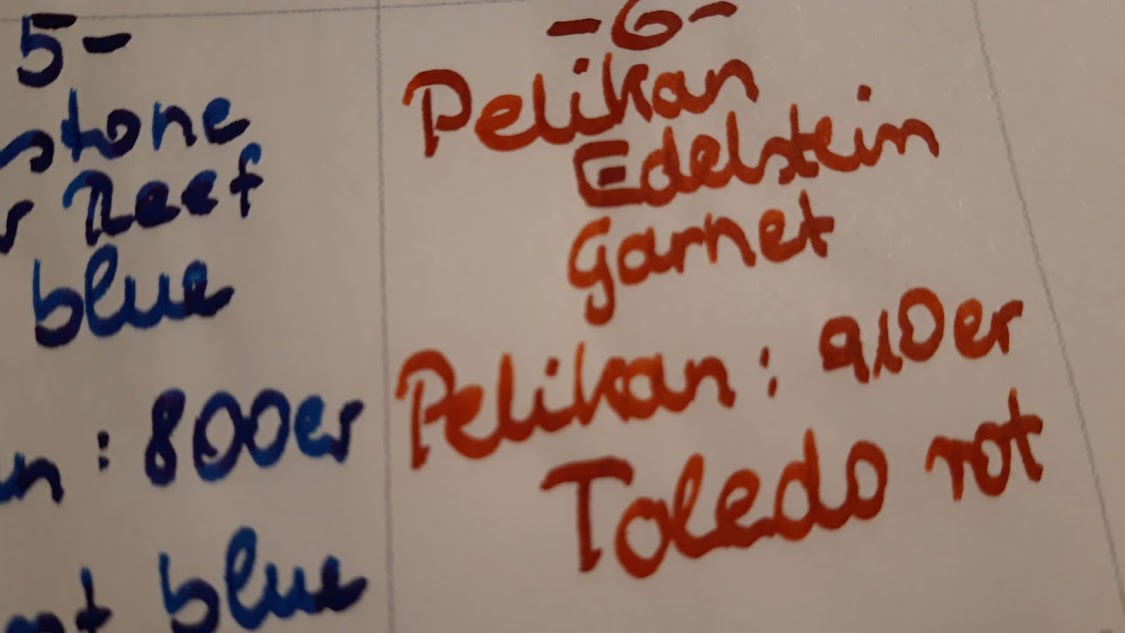 5-
stone
r Reef
blue
n : 800er
t blue
-6-
Pelikan
Edelstein
Garnet
Pelikan : 910er
Toledo rot